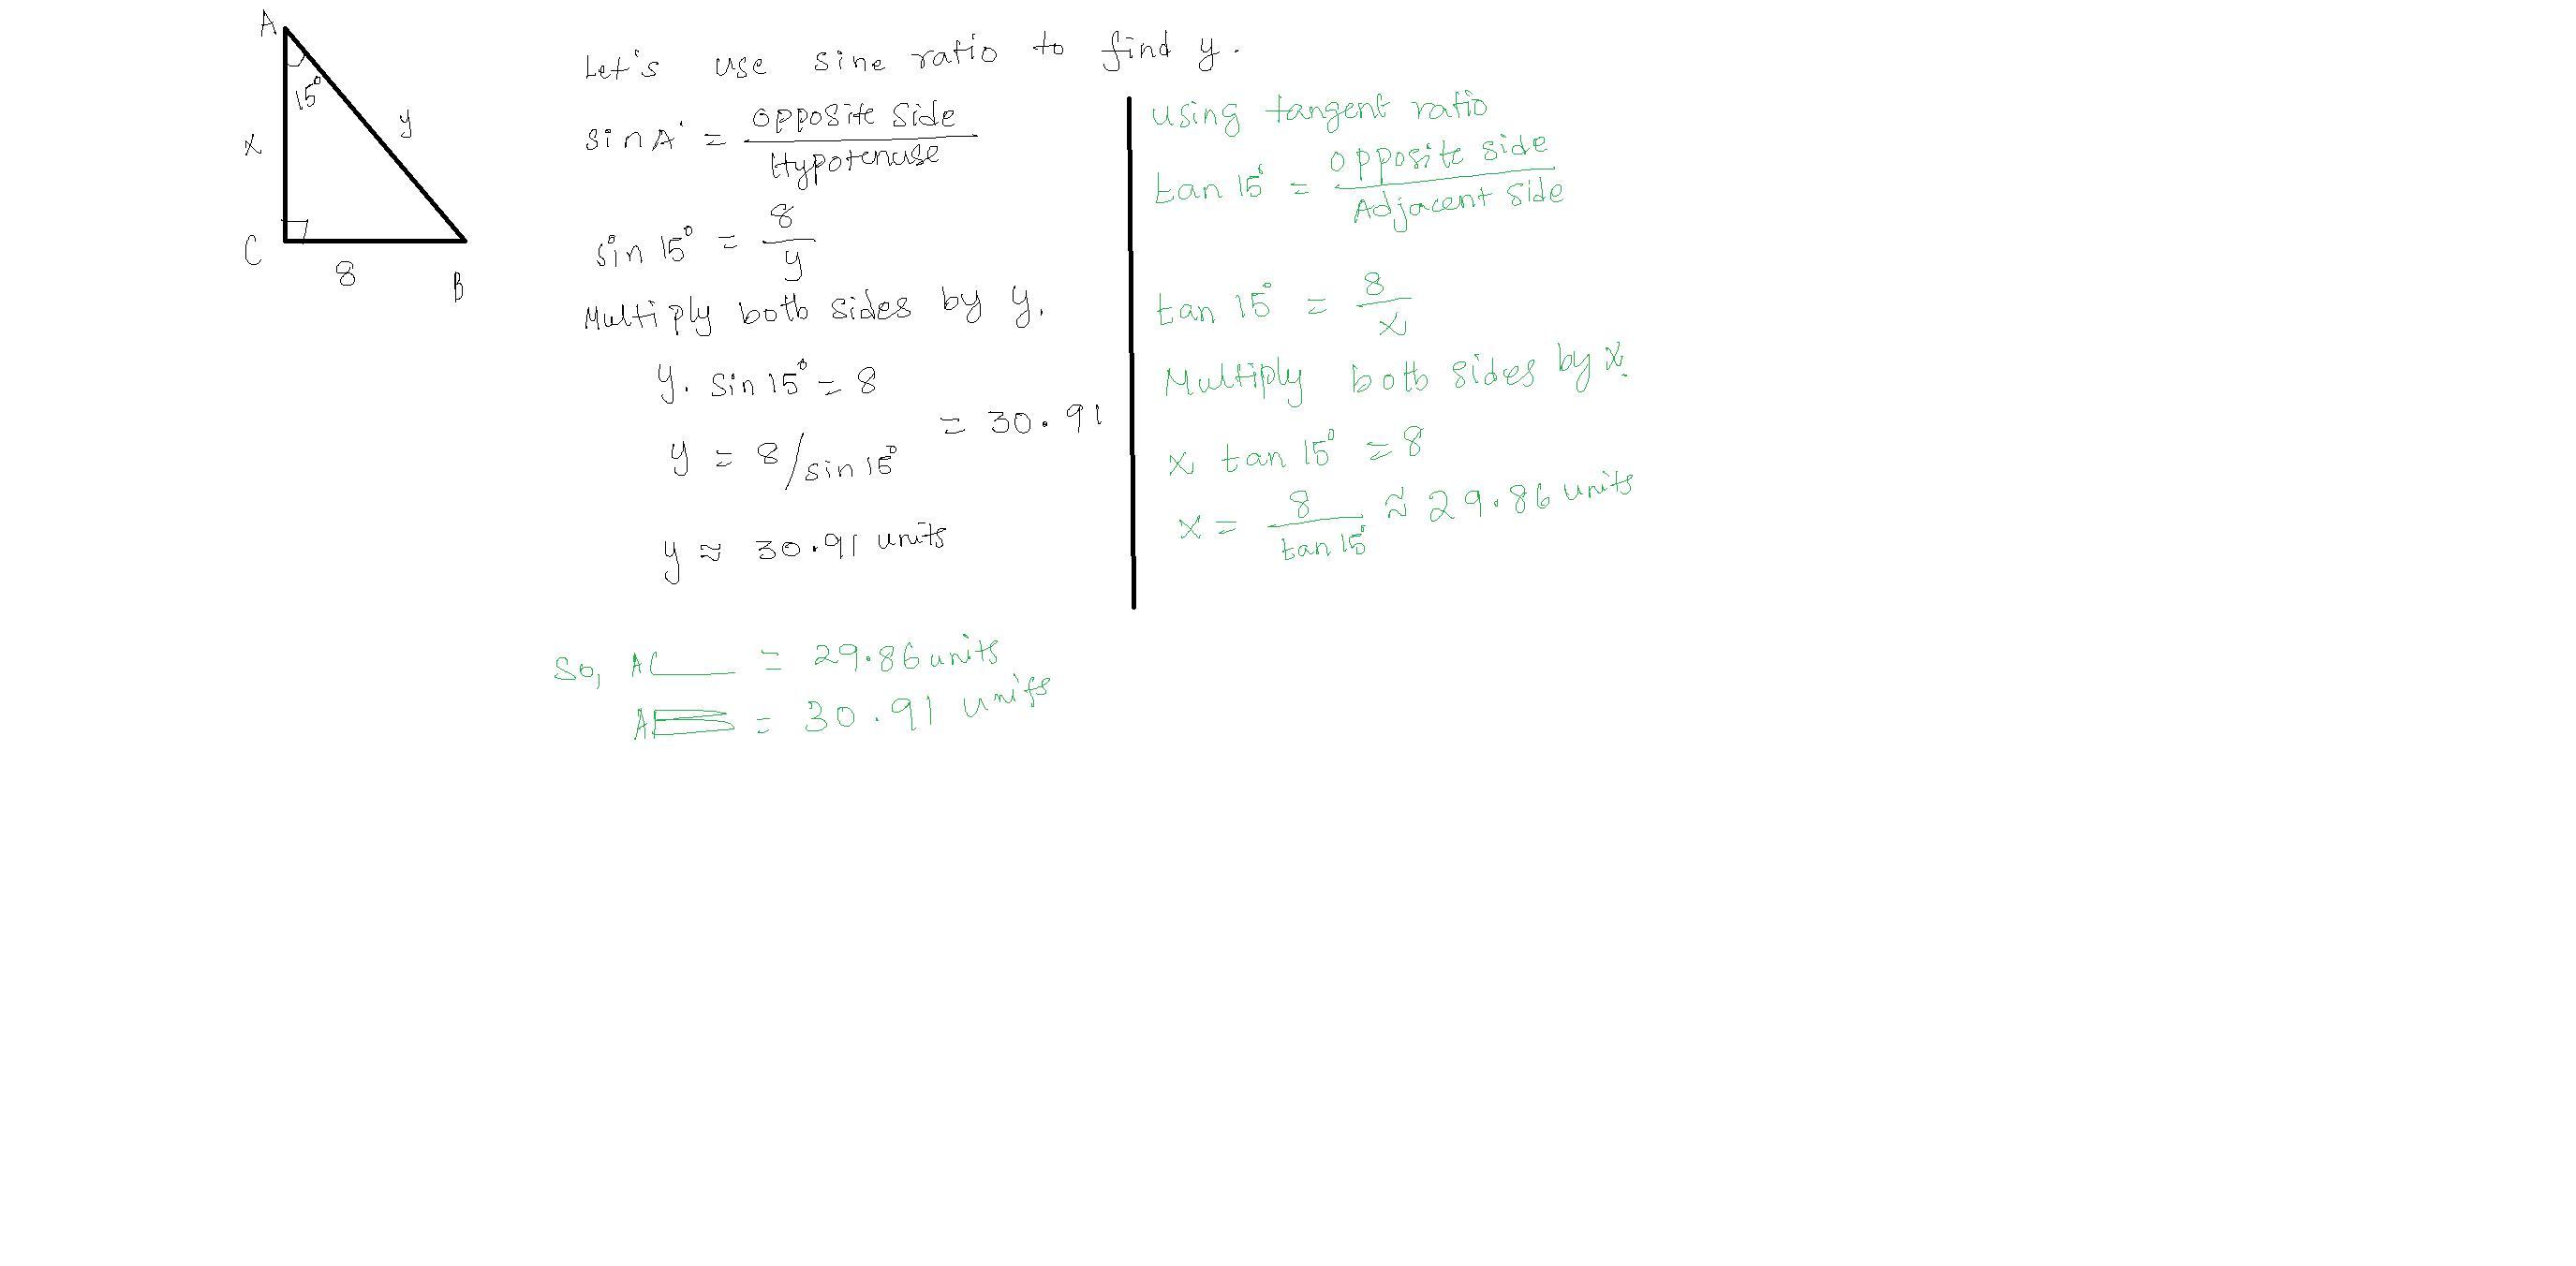 A
15°
x
y
C
8
B
Let's use sine ratio to find y.
sin A = opposite side / Hypotenuse
sin 15° = 8 / y
Multiply both sides by y.
y. sin 15° = 8
y = 8/sin 15° = 30.91
y ≈ 30.91 units
using tangent ratio
tan 15° = opposite side / Adjacent side
tan 15° = 8 / x
Multiply both sides by x.
x tan 15° = 8
x = 8 / tan 15° ≈ 29.86 units
So, AC = 29.86 units
AB = 30.91 units